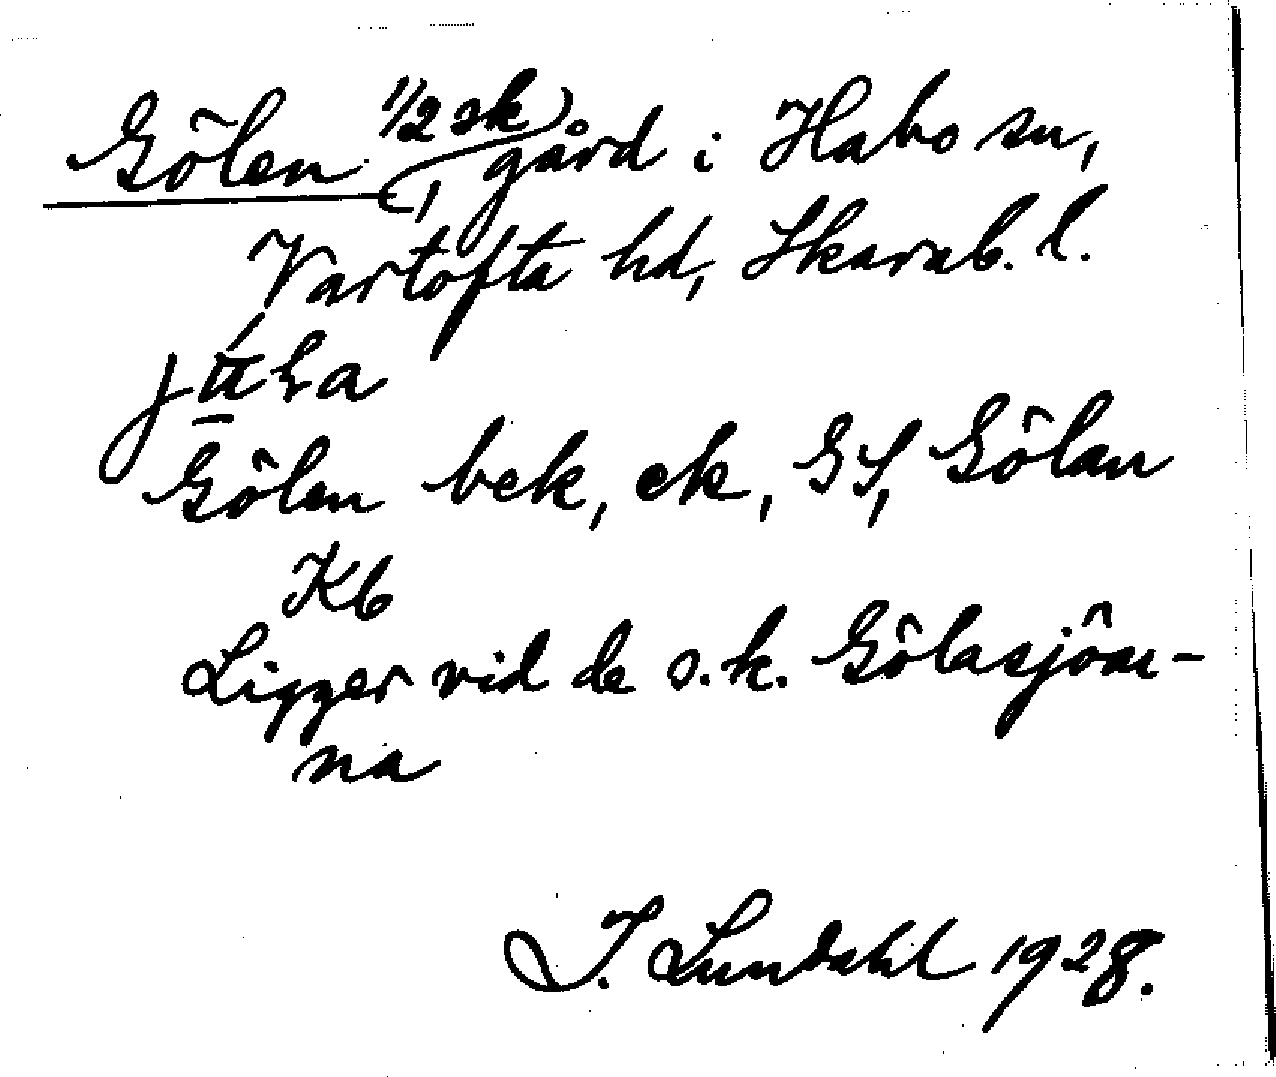 Gölen 1/2 sk, gård i Habo sn,
Vartofta hd, Skarab. l.
Gölen bek, ek, GS, Gölan
Kb
Ligger vid de s.k. Gölasjöar-
na
I. Lundahl 1928.